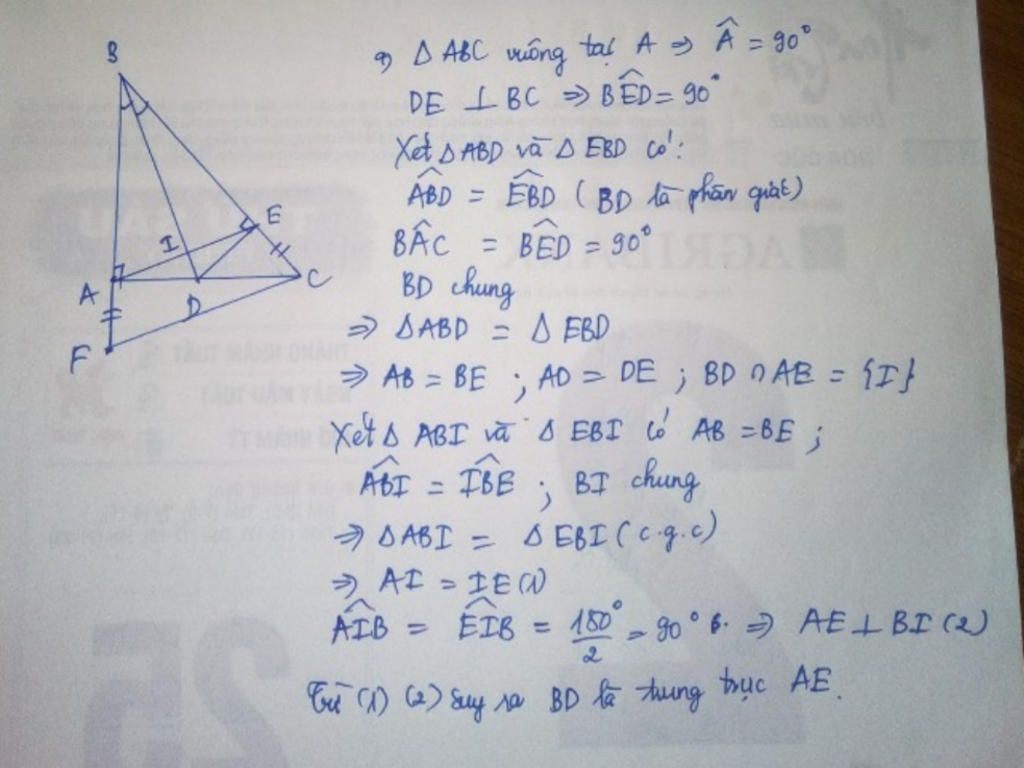 a) Δ ABC vuông tại A ⇒ Â = 90°
DE ⊥ BC ⇒ BÊD = 90°
Xét Δ ABD và Δ EBD có:
ABD̂ = EBD̂ (BD là phân giác)
BÂC = BÊD = 90°
BD chung
⇒ Δ ABD = Δ EBD
⇒ AB = BE ; AD = DE ; BD ∩ AE = {I}
Xét Δ ABI và Δ EBI có AB = BE ;
AB̂I = IB̂E ; BI chung
⇒ Δ ABI = Δ EBI (c.g.c)
⇒ AI = IE (1)
AÎB = EÎB = 180°/2 = 90° ⇒ AE ⊥ BI (2)
Từ (1) (2) suy ra BD là trung trực AE.
B
E
I
A
D
C
F
AGRIBANK
25